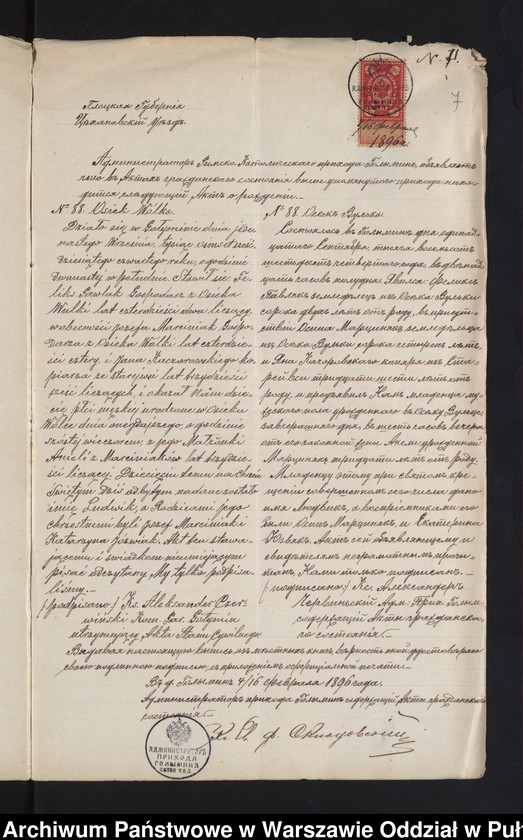 N. 11.
7
Плоцкая Губернія
Цѣхановскій Уѣздъ
4/16 февраля
1896 г.
Администраторъ Римско Католическаго прихода Голыминъ, объявляетъ
что въ Актахъ гражданскаго состоянія выше упомянутого прихода нахо-
дится слѣдующій Актъ о рожденіи.
№ 88. Osiek Wólka.
Działo się w Gołyminie dnia jede
nastego Września, tysiąc ośmset sześć
dziesiątego czwartego roku, o godzinie
dwunastej w południe. Stawił się Fe-
liks Pawlak Gospodarz z Osieka
Wulki lat czterdzieści dwa liczący,
w obecności Józefa Marciniak Gospo-
darza z Osieka Wulki lat czterdzie-
ści cztery, i Jana Kaczorowskiego ko
piarza ze Starejwsi lat trzydzieści
sześć liczących, i okazał Nam dziecię
płci męzkiej urodzone w Osieku
Wólce dnia onegdajszego, o godzinie
szóstej wieczorem, z jego Małżonki
Anieli z Marciniaków lat trzydzie-
ści liczącej. Dziecięciu temu na Chrzcie
Świętym Dziś odbytym nadane zostało
imię Ludwik, a Rodzicami jego
chrzestnemi byli Józef Marciniak i
Katarzyna Józwiak. Akt ten stawa-
jącemu i świadkom nieumiejącym
pisać odczytany, My tylko podpisa-
liśmy.
(podpisano) Ks. Aleksander Czer-
wiński Kom. Par. Gołymin
utrzymujący Akta Stanu Cywilnego
№ 88 Осекъ Вулька
Состоялось въ Голыминѣ дня одинад
цатаго Сентября, тысяча восемьсотъ
шестьдесятъ четвертаго года, въ двѣнад
цать часовъ полудня. Явился Феликсъ
Павлякъ земледѣлецъ изъ Осѣка Вульки
сорока двухъ лѣтъ отъ роду, въ присут
ствіи Осипа Марциняка земледѣльца
изъ Осѣка Вульки сорока четырехъ лѣтъ,
и Яна Качоровскаго копіара изъ Ста-
рейвси тридцати шести лѣтъ отъ
роду, и предъявилъ Намъ младенца му-
жескаго пола урожденнаго въ Осѣку Вульце
завчерашняго дня, въ шесть часовъ вечера
отъ его законной жены Анели урожденной
Марцинякъ тридцати лѣтъ отъ роду.
Младенцу этому при святомъ кре-
щеніи совершенномъ сего числа дано
имя Людвикъ, а воспріемниками его
были Осипъ Марцинякъ и Екатерина
Юзвякъ. Актъ сей объявляющему и
свидѣтелямъ неграмотнымъ прочи-
танъ, Нами только подписанъ.
(подписано:) Кс. Александеръ
Червинскій Адм: Прих: Голым:
содержащій Акты гражданска-
го состоянія.
Выдавая настоящую выпись изъ мѣстныхъ книгъ, вѣрность ея удостовѣряю
своею подлинною подписью, съ приложеніемъ офиціальной печати.
Въ д. Голыминъ 4/16 Февраля 1896 года.
Администраторъ прихода Голыминъ содержащій Акты гражданскаго
состоянія.
Кс.
АДМИНИСТРАТОРЪ
ПРИХОДА
ГОЛЫМИНЪ
Archiwum Państwowe w Warszawie Oddział w Puł